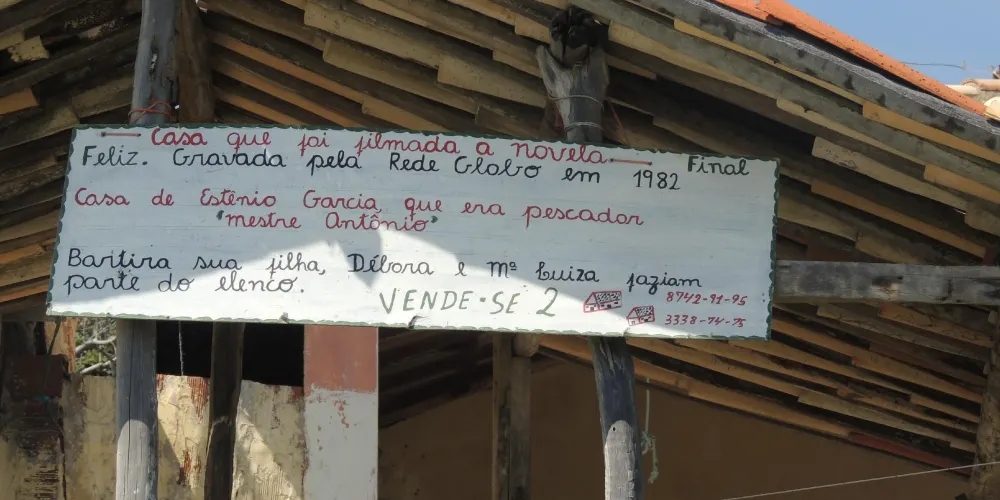 Casa que foi filmada a novela. Final
Feliz. Gravada pela Rede Globo em 1982
Casa de Estênio Garcia que era pescador
"mestre Antônio"
Baritira sua filha, Débora e Mª Luiza faziam
parte do elenco.
VENDE-SE 2
8742-91-95
3338-74-75